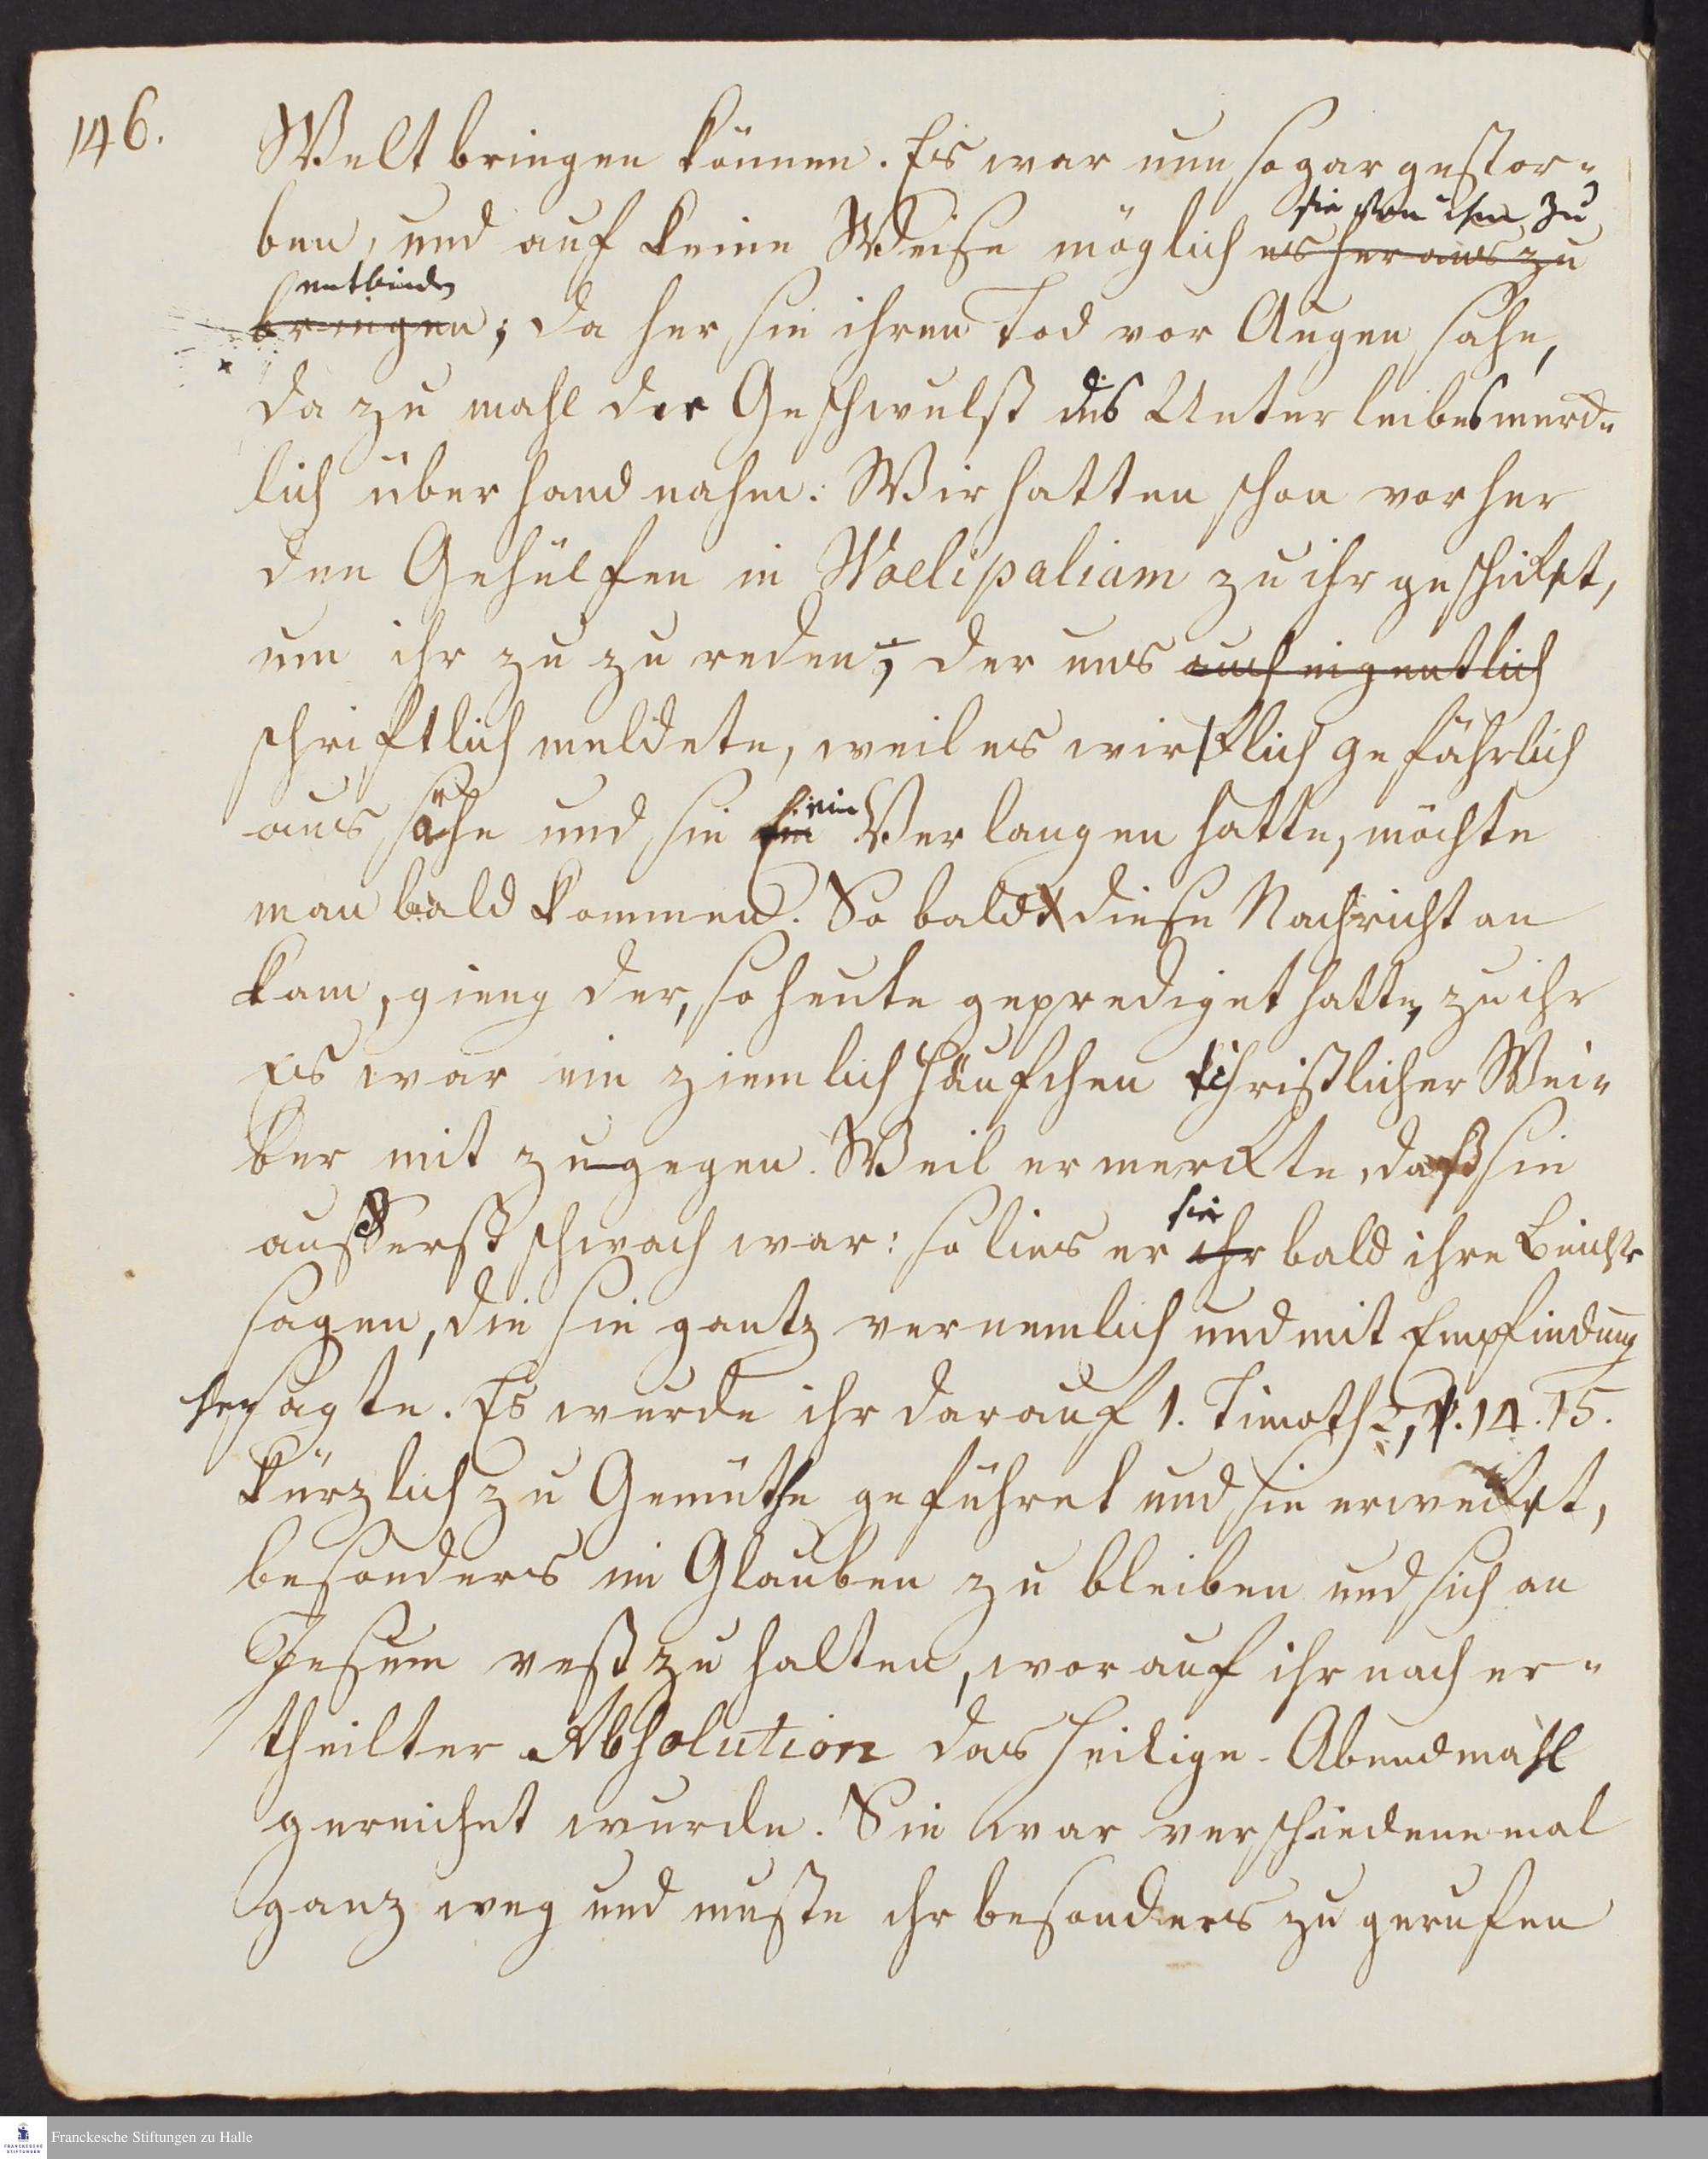 146.
Welt bringen können. Es war nun sogar gestor-
sie von ihm zu
ben, und auf keine Weise möglich es heraus zu
entbinden
bringen; da her sie ihren Tod vor Augen sahe,
da zu mahl der Geschwulst des Unter leibes merck-
lich über hand nahm. Wir hatten schon vorher
den Gehülfen in Woelipaliam zu ihr geschickt,
um ihr zu zu reden, der uns auch eigentlich
schriftlich meldete, weil es wircklich gefährlich
ein
aus sähe und sie Ein Verlangen hatte, möchte
man bald kommen. So bald diese Nachricht an
kam, gieng der, so heute geprediget hatte, zu ihr
Es war ein ziemlich Häufchen Christlicher Wei-
ber mit zugegen. Weil er merckte, daß sie
sie
ausserst schwach war: so lies er ihr bald ihre Beichte
sagen, die sie gantz vernemlich und mit Empfindung
hersagte. Es wurde ihr darauf 1. Timoth 2, v. 14. 15.
kürzlich zu Gemüthe geführet und sie erweckt,
besonders im Glauben zu bleiben und sich an
Jesum vest zu halten, worauf ihr nach er-
theilter Absolution das heilige Abendmahl
gereichet wurde. Sie war verschiedenemal
ganz weg und muste ihr besonders zu gerufen
Franckesche Stiftungen zu Halle
FRANCKESCHE
STIFTUNGEN